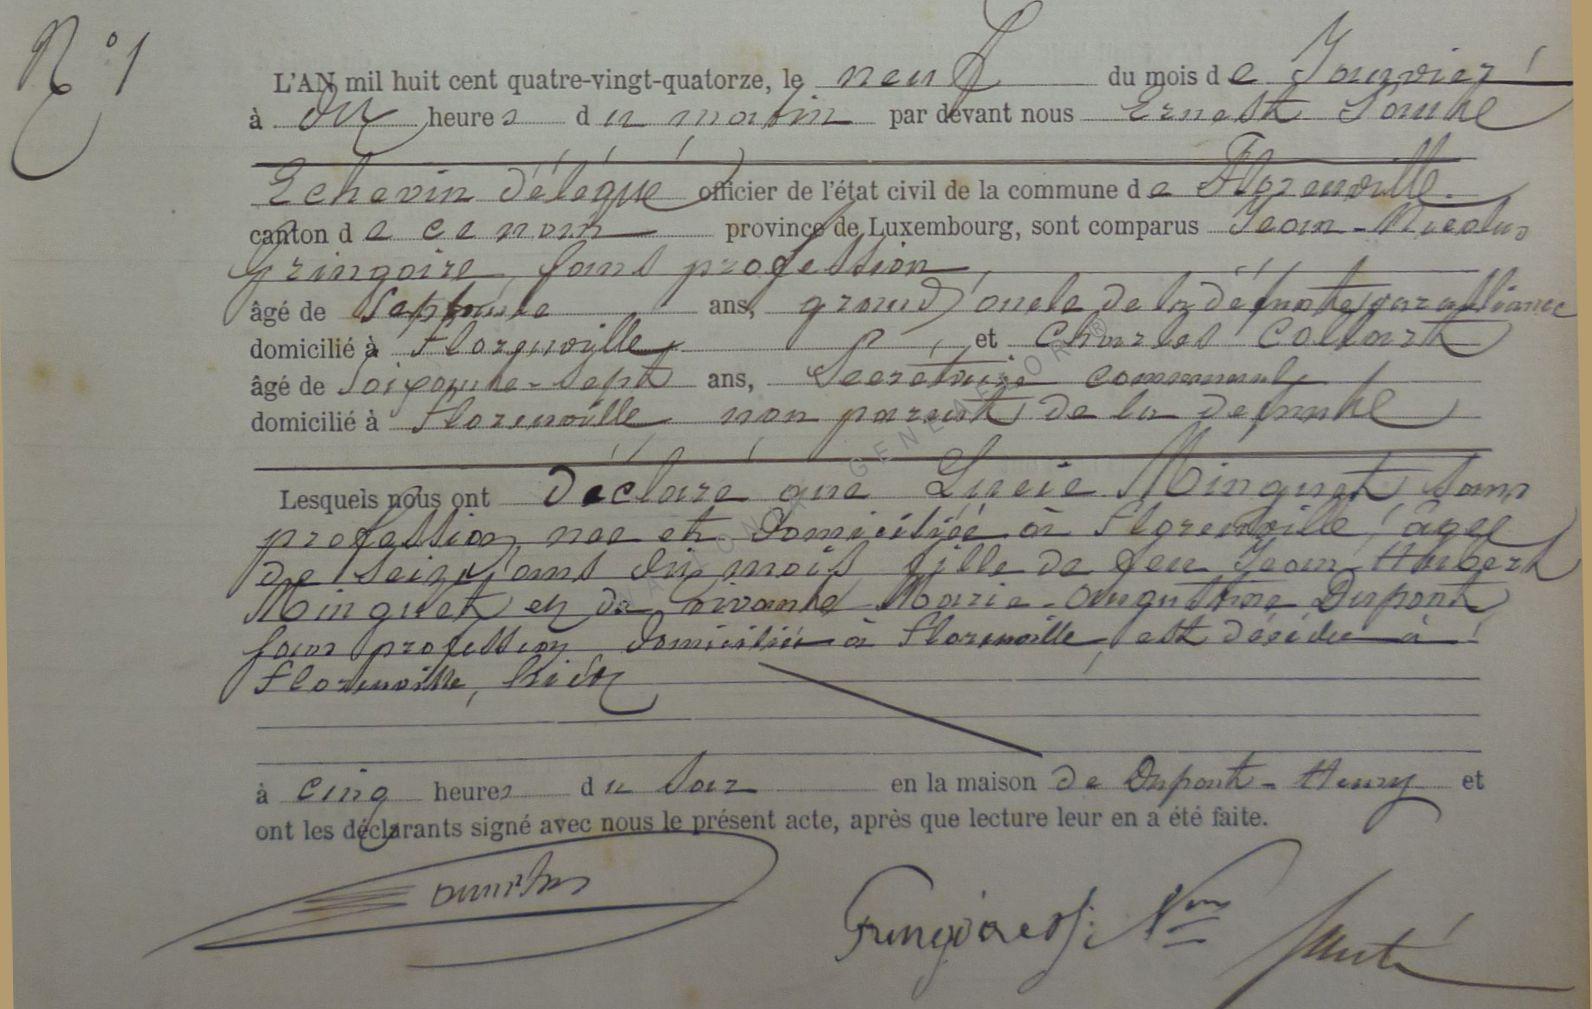 N° 1
L'AN mil huit cent quatre-vingt-quatorze, le neuf du mois de Janvier
à dix heures du matin par devant nous Ernest
Echevin délégué officier de l'état civil de la commune de Florenville.
canton de ce nom province de Luxembourg, sont comparus Jean-Nicolas
Gringoire, sans profession
âgé de Septante ans, grand oncle de la défunte par alliance
domicilié à Florenville et Charles Collart
âgé de Soixante-sept ans, Secrétaire communal
domicilié à Florenville non parent de la defunte
Lesquels nous ont déclaré que Lucie Minguet sans
profession, née et domiciliée à Florenville, âgée
de seize ans dix mois fille de feu Jean-Hubert
Minguet et de vivante Marie-Augustine Dupont
sans profession domiciliée à Florenville, est décédée à
Florenville, hier
à cinq heures du soir en la maison de Dupont-Henry et
ont les déclarants signé avec nous le présent acte, après que lecture leur en a été faite.